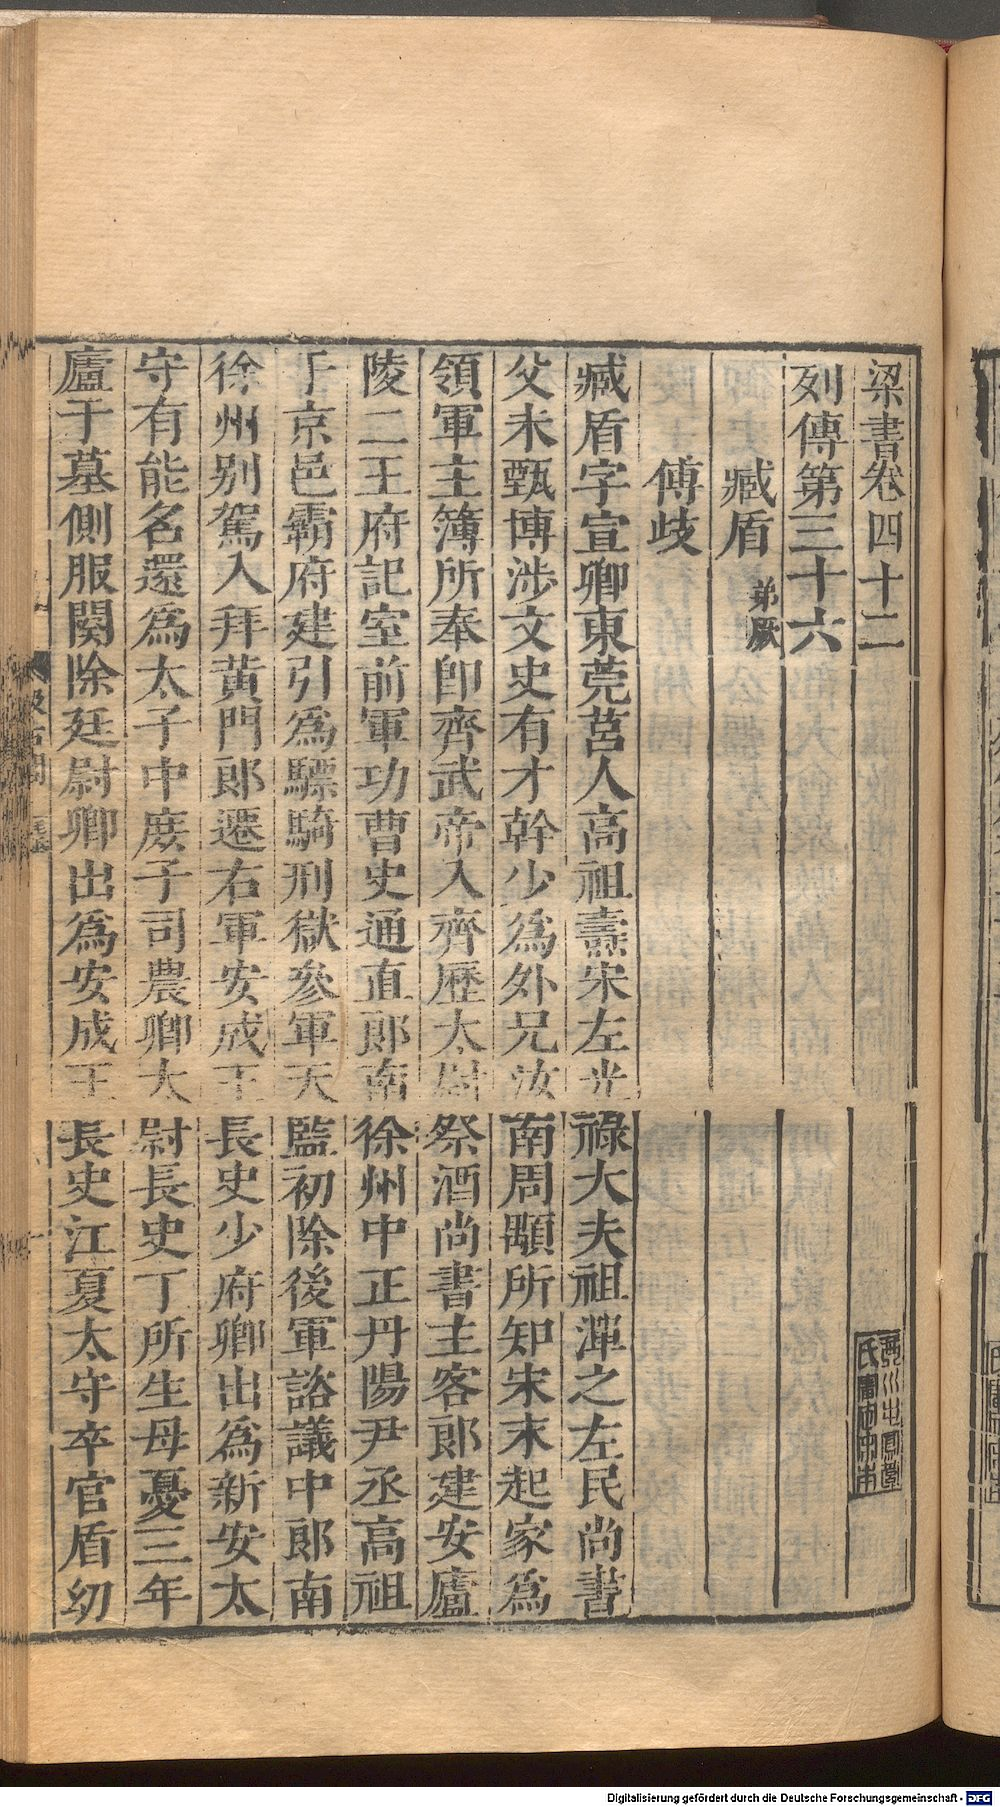 梁書卷四十二
列傳第三十六
臧盾 弟厥
傅歧
臧盾字宣卿東莞莒人高祖燾宋左光祿大夫祖潭之左民尚書
父未甄博涉文史有才幹少為外兄汝南周顒所知宋末起家為
領軍主簿所奉卽齊武帝入齊歷太尉祭酒尚書主客郎建安廬
陵二王府記室前軍功曹史通直郎南徐州中正丹陽尹丞高祖
平京邑霸府建引為驃騎刑獄參軍天監初除後軍諮議中郎南
徐州別駕入拜黃門郎遷右軍安成王長史少府卿出為新安太
守有能名還為太子中庶子司農卿太尉長史丁所生母憂三年
廬于墓側服闋除廷尉卿出為安成王長史江夏太守卒官盾幼
Digitalisierung gefördert durch die Deutsche Forschungsgemeinschaft - DFG